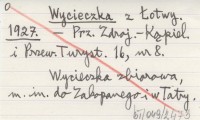 Wycieczka z Łotwy.
1927. — Prz. Zdroj.-Kąpiel.
i Przew. Turyst. 16, nr 8.
Wycieczka zbiorowa,
m. in. do Zakopanego i w Tatry.